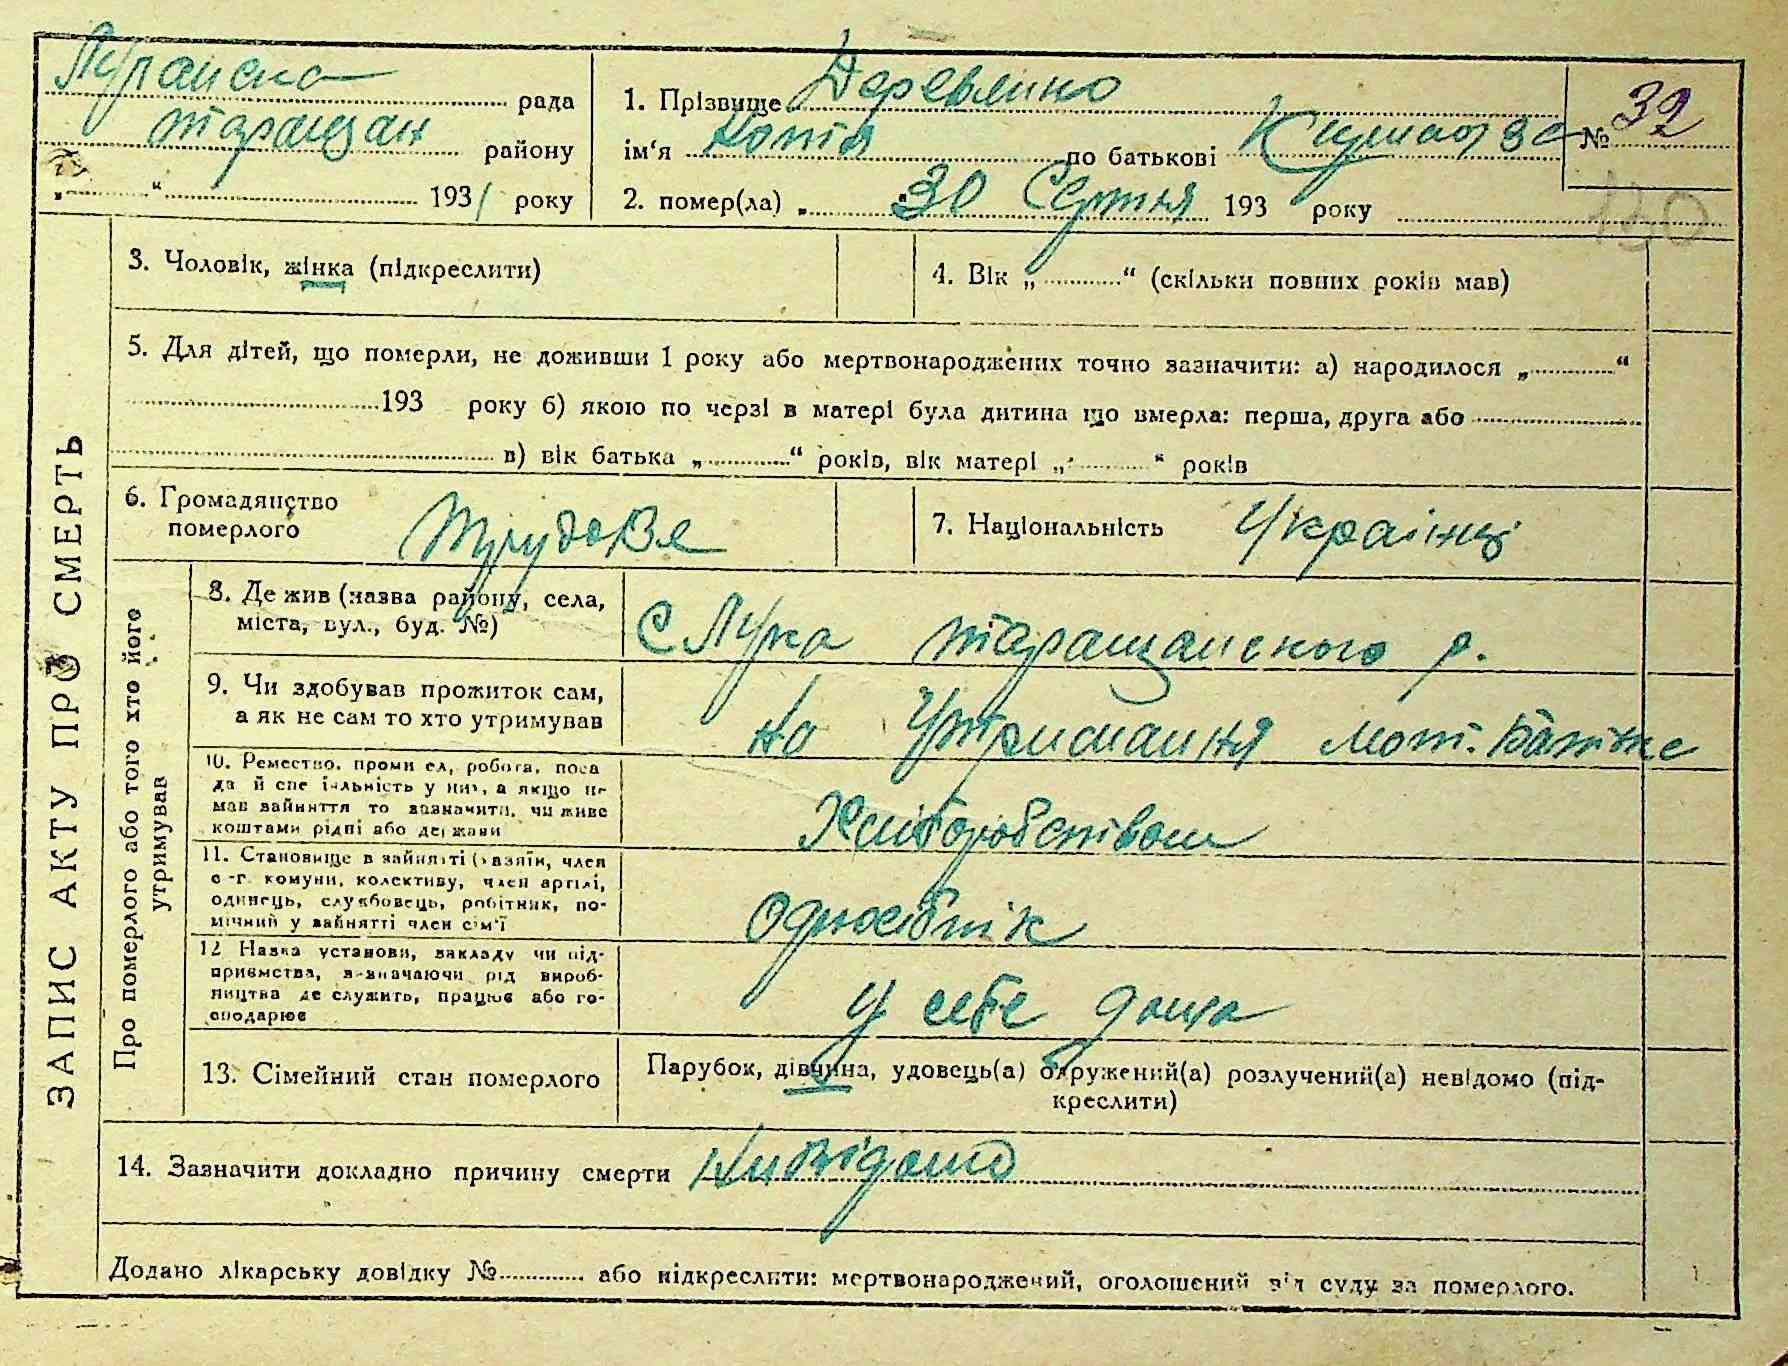 Луганска рада
таращан району
„ “ 1931 року
1. Прізвище Деревянко
ім‘я Котя по батькові
№ 32
2. помер(ла) „ 30 Серпня 193 року
130
ЗАПИС АКТУ ПРО СМЕРТЬ
3. Чоловік, жінка (підкреслити)
4. Вік „ “ (скільки повних років мав)
5. Для дітей, що померли, не доживши 1 року або мертвонароджених точно зазначити: а) народилося „ “
193 року б) якою по черзі в матері була дитина що вмерла: перша, друга або
в) вік батька „ “ років, вік матері „ “ років
6. Громадянство
померлого Трудове
7. Національність Українці
Про померлого або того хто його
утримував
8. Де жив (назва району, села,
міста, вул., буд. №) С Лука таращанского р.
9. Чи здобував прожиток сам,
а як не сам то хто утримував на Утримання мат. батьке
10. Ремество, промисел, робота, поса
да й спеціальність у них, а якщо не
мав зайняття то зазначити, чи живе
коштами рідні або держави Хліборобством
11. Становище в зайнятті (хазяїн, член
с-г. комуни, колективу, член артілі,
одинець, службовець, робітник, по-
мічний у зайнятті член сім‘ї одноосібнік
12 Назва установи, закладу чи під-
приємства, зазначаючи рід вироб-
ництва де служить, працює або го-
сподарює у себе дома
13. Сімейний стан померлого
Парубок, дівчина, удовець(а) одружений(а) розлучений(а) невідомо (під-
креслити)
14. Зазначити докладно причину смерти Нивідомо
Додано лікарську довідку № або підкреслити: мертвонароджений, оголошений від суду за померлого.